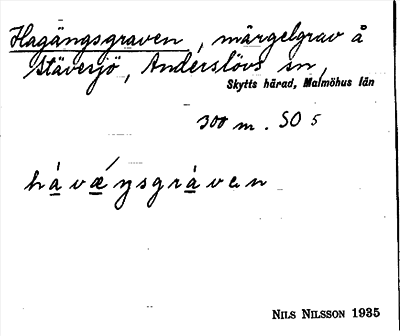 Hagängsgraven, märgelgrav å
Stäversjö, Anderslövs sn,
Skytts härad, Malmöhus län
300 m. SO 5
hàvǽŋsgràven
NILS NILSSON 1935